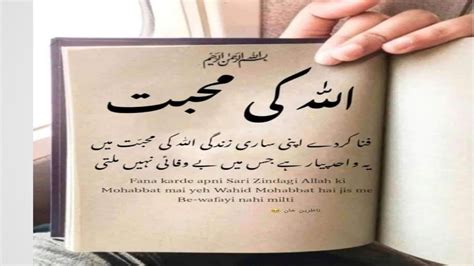 بسم اللہ الرحمن الرحیم
اللہ کی محبت
فنا کر دے اپنی ساری زندگی اللہ کی محبّت میں
یہ واحد پیار ہے جس میں بے وفائی نہیں ملتی
Fana karde apni Sari Zindagi Allah ki
Mohabbat mai yeh Wahid Mohabbat hai jis me
Be-wafayi nahi milti
خان